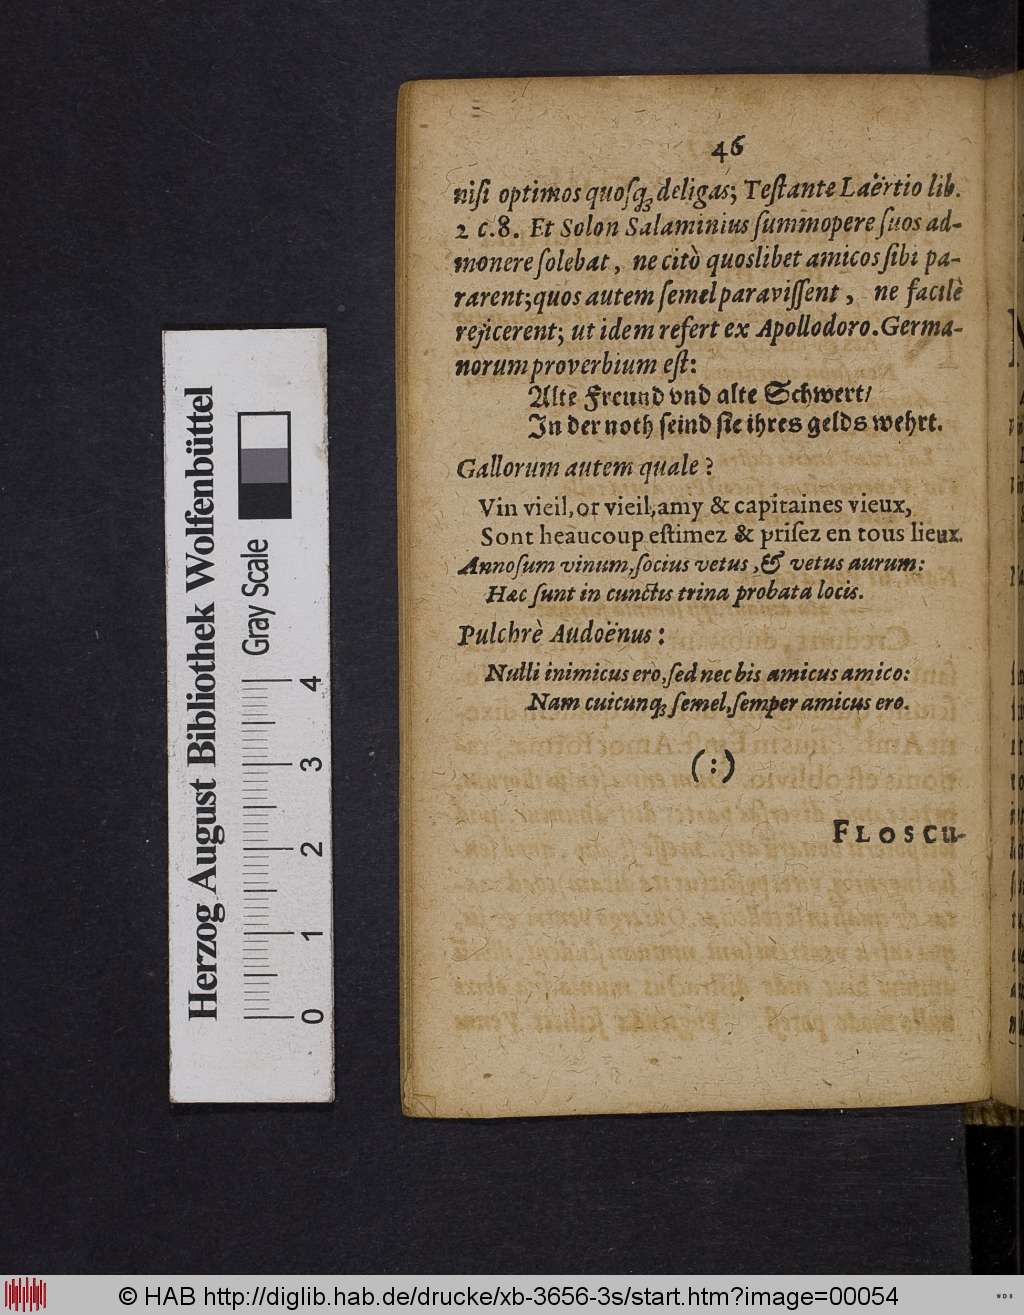 46
niſi optimos quoſq; deligas; Teſtante Laërtio lib.
2 c.8. Et Solon Salaminius ſummopere ſuos ad-
monere ſolebat, ne citò quoslibet amicos ſibi pa-
rarent; quos autem ſemel paraviſſent, ne facilè
rejicerent; ut idem refert ex Apollodoro. Germa-
norum proverbium eſt:
Alte Freund vnd alte Schwert/
In der noth ſeind ſie ihres gelds wehrt.
Gallorum autem quale?
Vin vieil, or vieil, amy & capitaines vieux,
Sont beaucoup eſtimez & priſez en tous lieux.
Annoſum vinum, ſocius vetus, & vetus aurum:
Hæc ſunt in cunctis trina probata locis.
Pulchrè Audoënus:
Nulli inimicus ero, ſed nec bis amicus amico:
Nam cuicunq; ſemel, ſemper amicus ero.
(:)
FLOSCU-
Herzog August Bibliothek Wolfenbüttel
Gray Scale
0 1 2 3 4
© HAB http://diglib.hab.de/drucke/xb-3656-3s/start.htm?image=00054